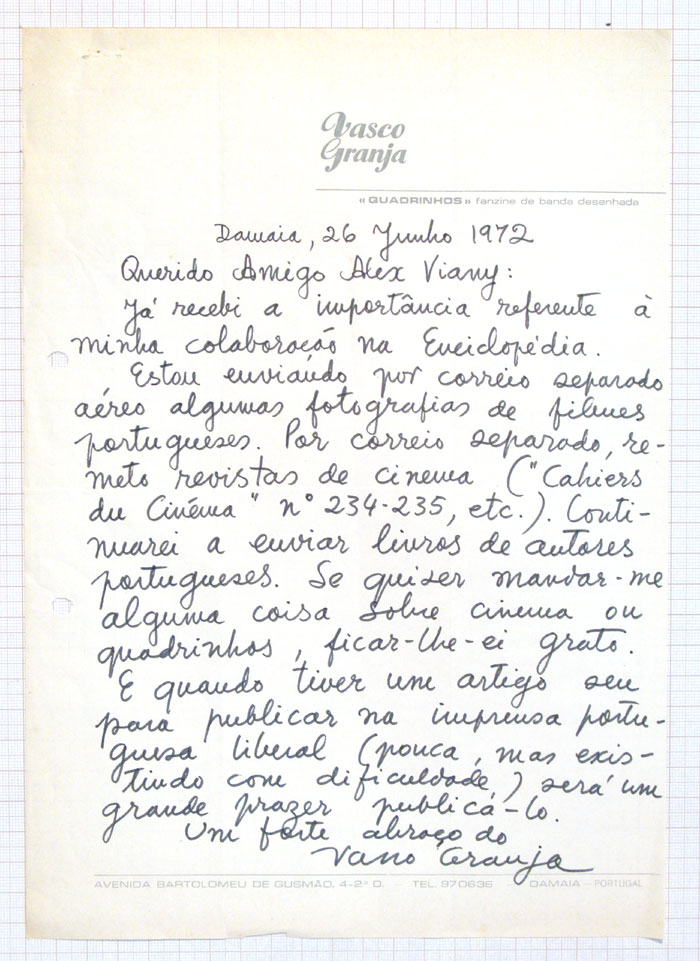 Vasco
Granja
« QUADRINHOS » fanzine de banda desenhada
Damaia, 26 Junho 1972
Querido Amigo Alex Viany:
Já recebi a importância referente à
minha colaboração na Enciclopédia.
Estou enviando por correio separado
aéreo algumas fotografias de filmes
portugueses. Por correio separado, re-
meto revistas de cinema ("Cahiers
du Cinéma" nº 234-235, etc.). Conti-
nuarei a enviar livros de autores
portugueses. Se quiser mandar-me
alguma coisa sobre cinema ou
quadrinhos, ficar-lhe-ei grato.
E quando tiver um artigo seu
para publicar na imprensa portu-
guesa liberal (pouca, mas exis-
tindo com dificuldade,) será um
grande prazer publicá-lo.
Um forte abraço do
Vasco Granja
AVENIDA BARTOLOMEU DE GUSMÃO, 4-2º D. — TEL. 970636 — DAMAIA — PORTUGAL